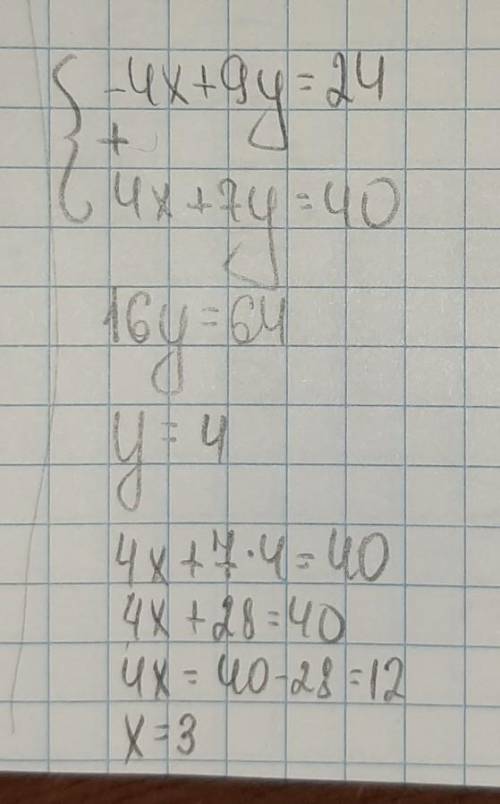 -4x+9y=24
+
4x+7y=40
16y=64
y=4
4x+7·4=40
4x+28=40
4x=40-28=12
x=3